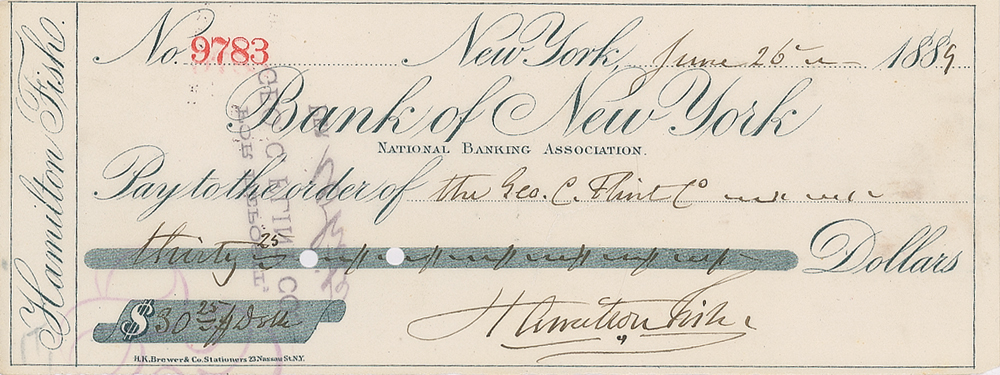 Hamilton Fish
No. 9783 New York, June 26 1889
Bank of New York
NATIONAL BANKING ASSOCIATION.
Pay to the order of the Geo. C. Flint Co
thirty 25 Dollars
$ 30 25 Dolls
Hamilton Fish
H.K. Brewer & Co. Stationers 23 Nassau St. N.Y.